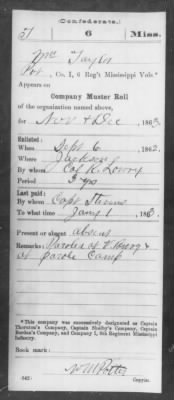 Confederate.
T 6 Miss.
Wm Taylor
Pvt, Co. I, 6 Reg't Mississippi Vols.*
Appears on
Company Muster Roll
of the organization named above,
for Nov & Dec, 1863.
Enlisted:
When Sept 6, 1862.
Where Jackson
By whom Col R. Lowry
Period 3 yrs
Last paid:
By whom Capt
To what time Jany 1, 1863.
Present or absent absent
Remarks: Paroled at V.burg &
at parole camp
*This company was successively designated as Captain
Thornton's Company, Captain Shelby's Company, Captain
Borden's Company, and Company I, 6th Regiment Mississippi
Infantry.
Book mark:
(642)
Copyist.